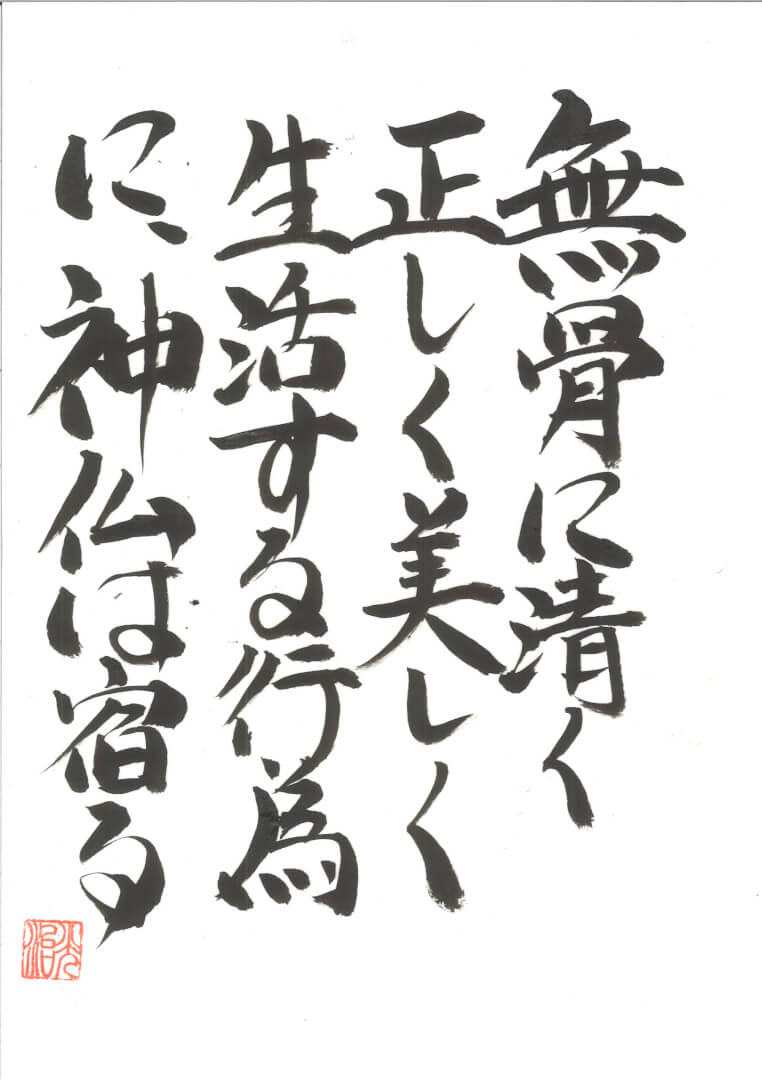 無骨に清く
正しく美しく
生活する行為
に、神仏は宿る